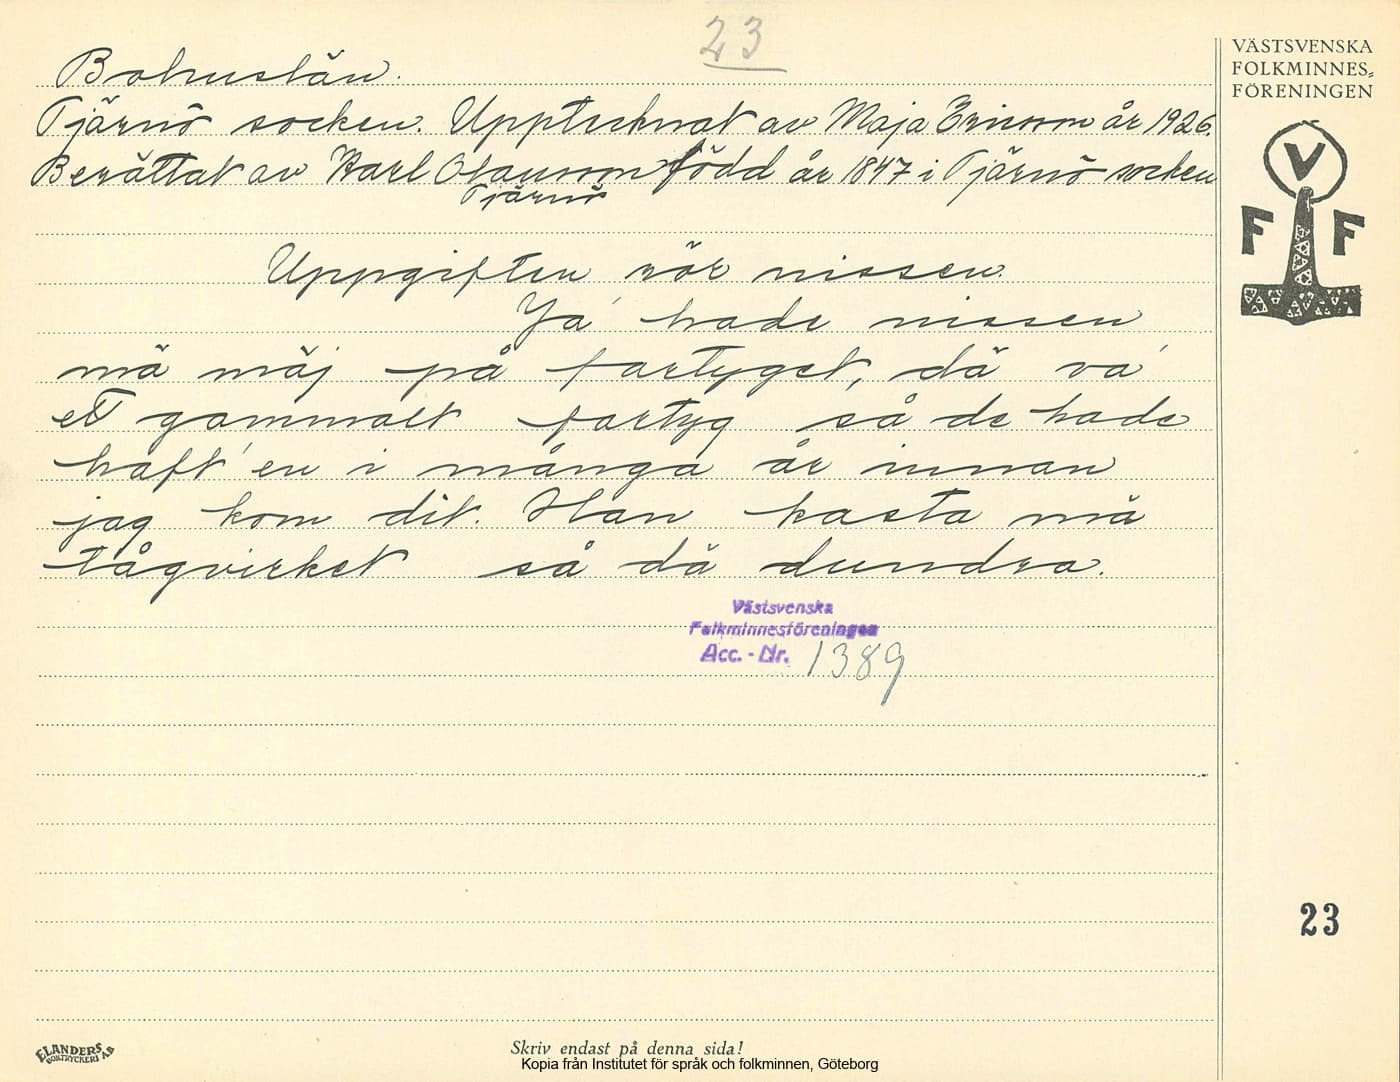 23
Bohuslän.
Tjärnö socken. Upptecknat av Maja Ericson år 1926.
Berättat av Karl Olausson född år 1847 i Tjärnö socken
Tjärnö
Uppgiften rör nissen.
Ja' hade nissen
mä mäj på fartyget, dä va'
et gammalt fartyg så de hade
haft' en i många år innan
jag kom dit. Han kasta må
tågvirket så dä dundra.
Västsvenska
Folkminnesföreningen
Acc. - Nr. 1389
VÄSTSVENSKA
FOLKMINNES=
FÖRENINGEN
V
F F
23
ELANDERS
BOKTRYCKERI AB
Skriv endast på denna sida!
Kopia från Institutet för språk och folkminnen, Göteborg